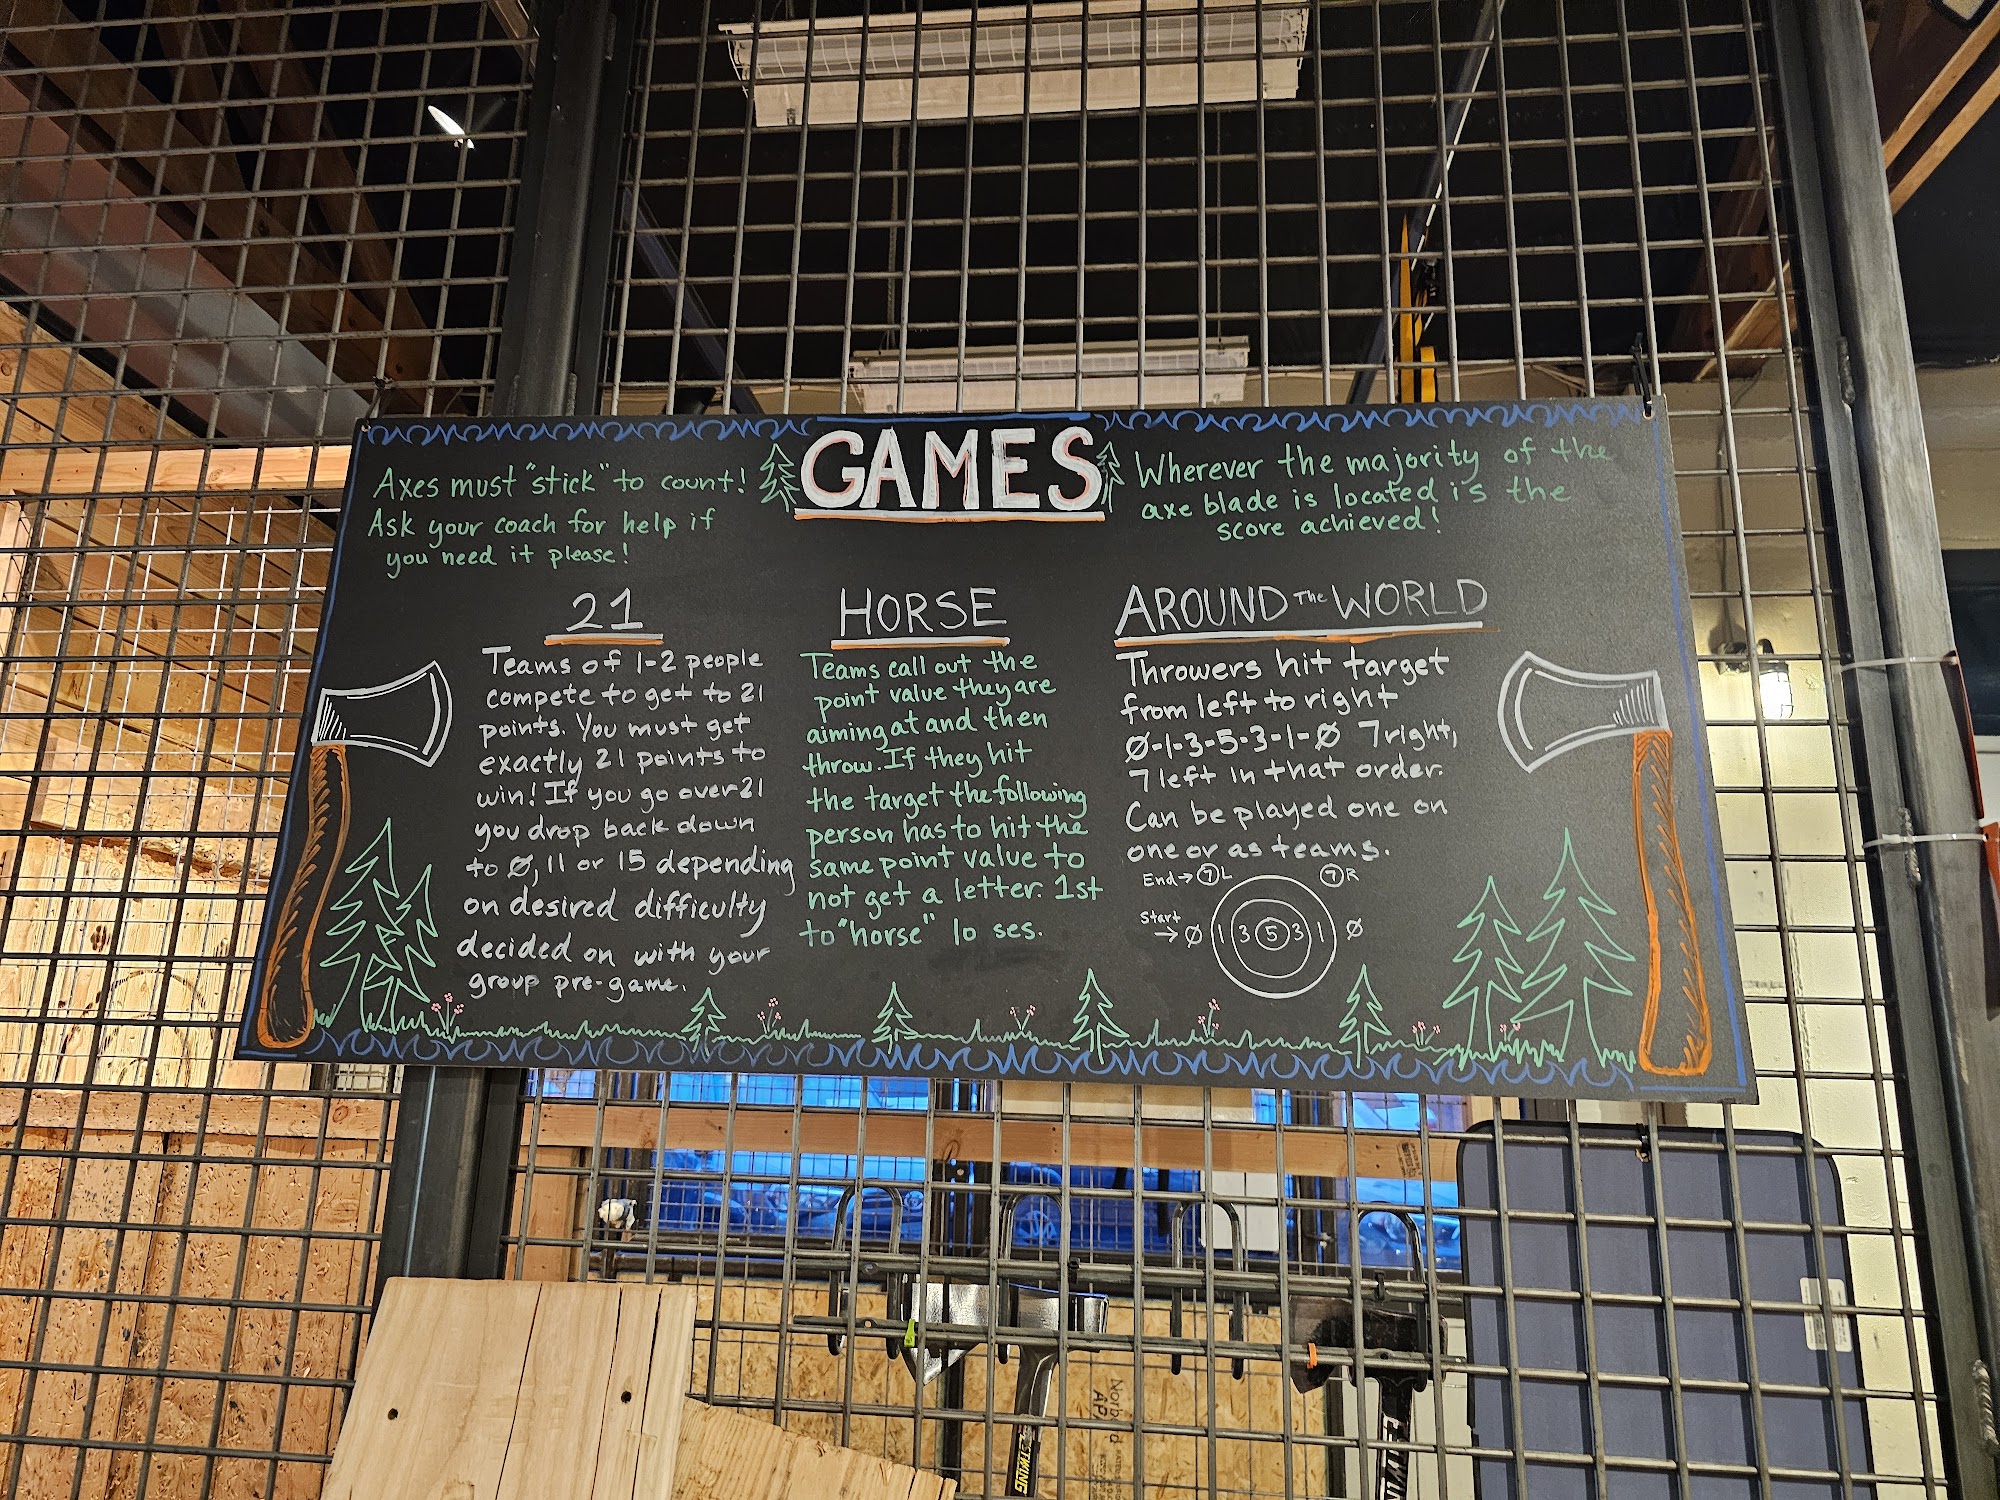 GAMES
Axes must "stick" to count!
Ask your coach for help if
you need it please!
Wherever the majority of the
axe blade is located is the
score achieved!
21
Teams of 1-2 people
compete to get to 21
points. You must get
exactly 21 points to
win! If you go over 21
you drop back down
to Ø, 11 or 15 depending
on desired difficulty
decided on with your
group pre-game.
HORSE
Teams call out the
point value they are
aiming at and then
throw. If they hit
the target the following
person has to hit the
same point value to
not get a letter. 1st
to "horse" lo ses.
AROUND The WORLD
Throwers hit target
from left to right
Ø-1-3-5-3-1-Ø 7right,
7 left in that order.
Can be played one on
one or as teams.
End→ 7 L 7 R
Start
→ Ø 1 3 5 3 1 Ø
ESTWING